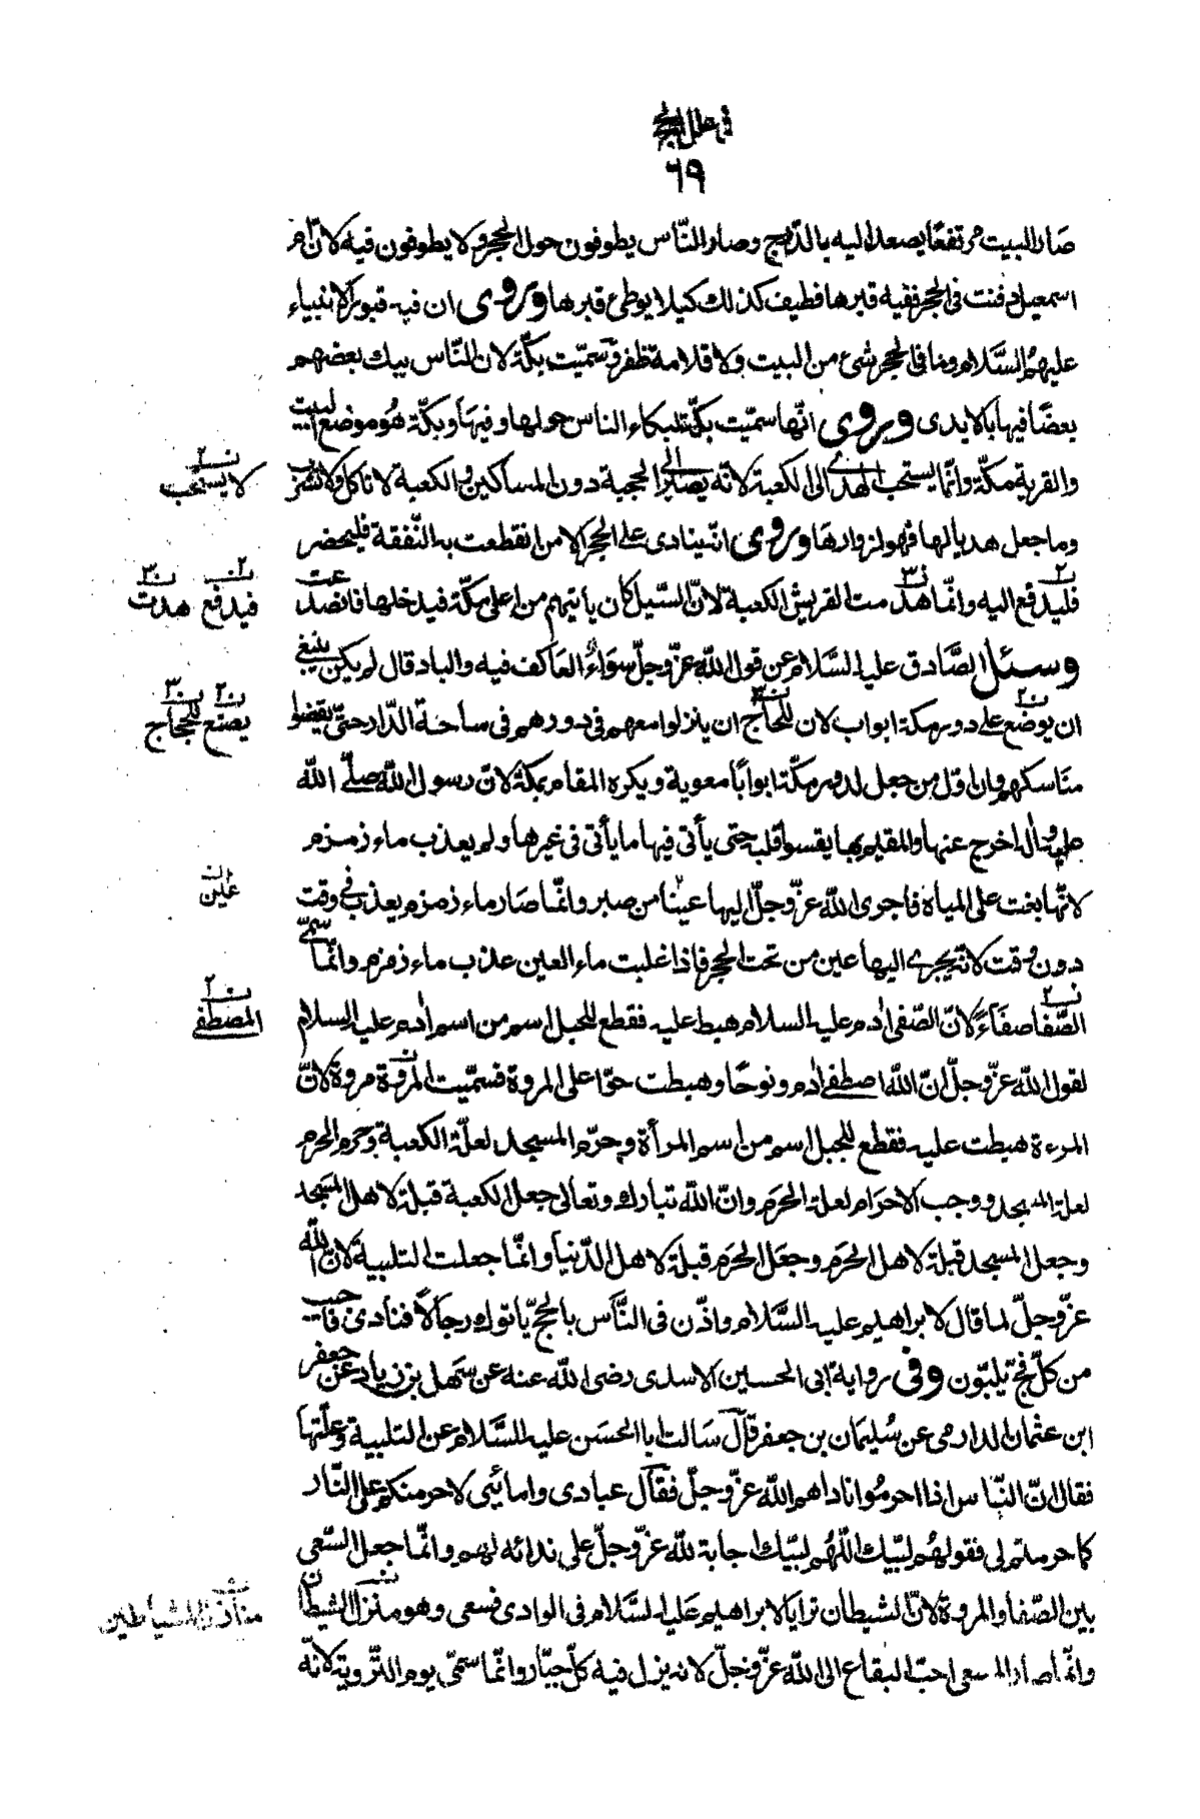 في علل الحج
٦٩
صار البيت مرتفعًا يصعد اليه بالدّرج وصار النّاس يطوفون حول الحجر ولا يطوفون فيه لانّ امّ
اسمعيل دفنت في الحجر ففيه قبرها فطيف كذلك كيلا يوطئ قبرها وروى ان فيه قبور الانبياء
عليهمُ السَّلام وما في الحجر شئ من البيت ولا قلامة ظفر وسميّت بكّة لان النّاس يبك بعضهم
بعضًا فيها بالايدى وروى انّها سميّت بكّة لبكاء الناس حولها وفيها وبكّة هُو موضع البيت
والقرية مكّة وانّما يستحب الهدى الى الكعبة لانّه يصير الى الحجبة دون المساكين والكعبة لا تاكل ولا تشرب
لا يستحب
وما جعل هديا لها فهو لزوارها وروى انّه ينادى على الحجر الا من انقطعت به النّفقة فليحضر
فليدفع اليه وانّما هدمت القريش الكعبة لانّ السّيل كان يأتيهم من اعلى مكّة فيدخلها فانصدعت
فيدفع هدت
وسئل الصَّادق عليه السَّلام عن قول اللّه عزّ وجلّ سوَاءً العَاكف فيه والباد قال لم يكن ينبغى
ان يوضع على دور مكة ابواب لان للحاجّ ان ينزلوا معهم في دورهم في ساحة الدّار حتىّ يقضوا
يصنع للحجّاج
مناسكهم وان اوّل من جعل لدور مكّة ابوابًا معوية ويكره المقام بمكّة لانّ رسول اللّه صلّى اللّه
عليه واٰله اخرج عنها والمقيم بها يقسوا قلبه حتى يأتى فيها ما يأتى في غيرها ولم يعذب ماء زمزم
لانّها بغت على المياه فاجرى اللّه عزّ وجلّ اليها عينًا من صبر وانّما صار ماء زمزم يعذب في وقت
عين
دون وقت لانّه يجرى اليها عين من تحت الحجر فاذا غلبت ماء العين عذب ماء زمزم وانّما سمّى
الصّفا صفاءً لانّ الصّفى اٰدم عليه السلام هبط عليه فقطع للجبل اسم من اسم اٰدم عليه السلام
المصطفى
لقول اللّه عزّ وجلّ انّ اللّه اصطفى اٰدم ونوحًا وهبطت حوّا على المروة فسمّيت المروة مروة لانّ
المرءة هبطت عليه فقطع للجبل اسم من اسم المرأة وحرّم المسجد لعلّة الكعبة وحرم الحرم
لعلة المسجد ووجب الاحرام لعلة الحرَم وانّ اللّه تبارك وتعالى جعل الكعبة قبلة لاهل المسجد
وجعل المسجد قبلة لاهل الحرَم وجعَل الحرَم قبلة لاهل الدّنيا وانّما جعلت التلبية لانّ اللّه
عزّ وجلّ لما قال لابراهيم عليه السَّلام واذّن في النّاس بالحجّ يأتوك رجالاً فنادى فاجيب
من كلّ فجّ يلبّون وفي رواية ابى الحسين الاسدى رضى اللّه عنه عن سَهل بن زياد عن جعفر
ابن عثمان الدارمى عن سُليمَان بن جعفر قال سَالت ابا الحسَن عليه السَّلام عن التلبية وعلّتها
فقال انّ النّاس اذا احرمُوا ناداهم اللّه عزّ وجلّ فقال عبادى وامائى لاحرمنكم على النّار
كما حرمتم لى فقولهُم لبّيك اللّهُم لبّيك اجابة للّه عزّ وجلّ على ندائه لهم وانّما جعل السّعى
بين الصّفا والمروة لانّ الشيطان ترايا لابراهيم عليه السَّلام في الوادى فسعى وهو منزل الشيطان
منازل الشياطين
وانّما صار المسعى احبّ البقاع الى اللّه عزّ وجلّ لانه يزل فيه كلّ جبّار وانّما سمّى يوم التّروية لانّه